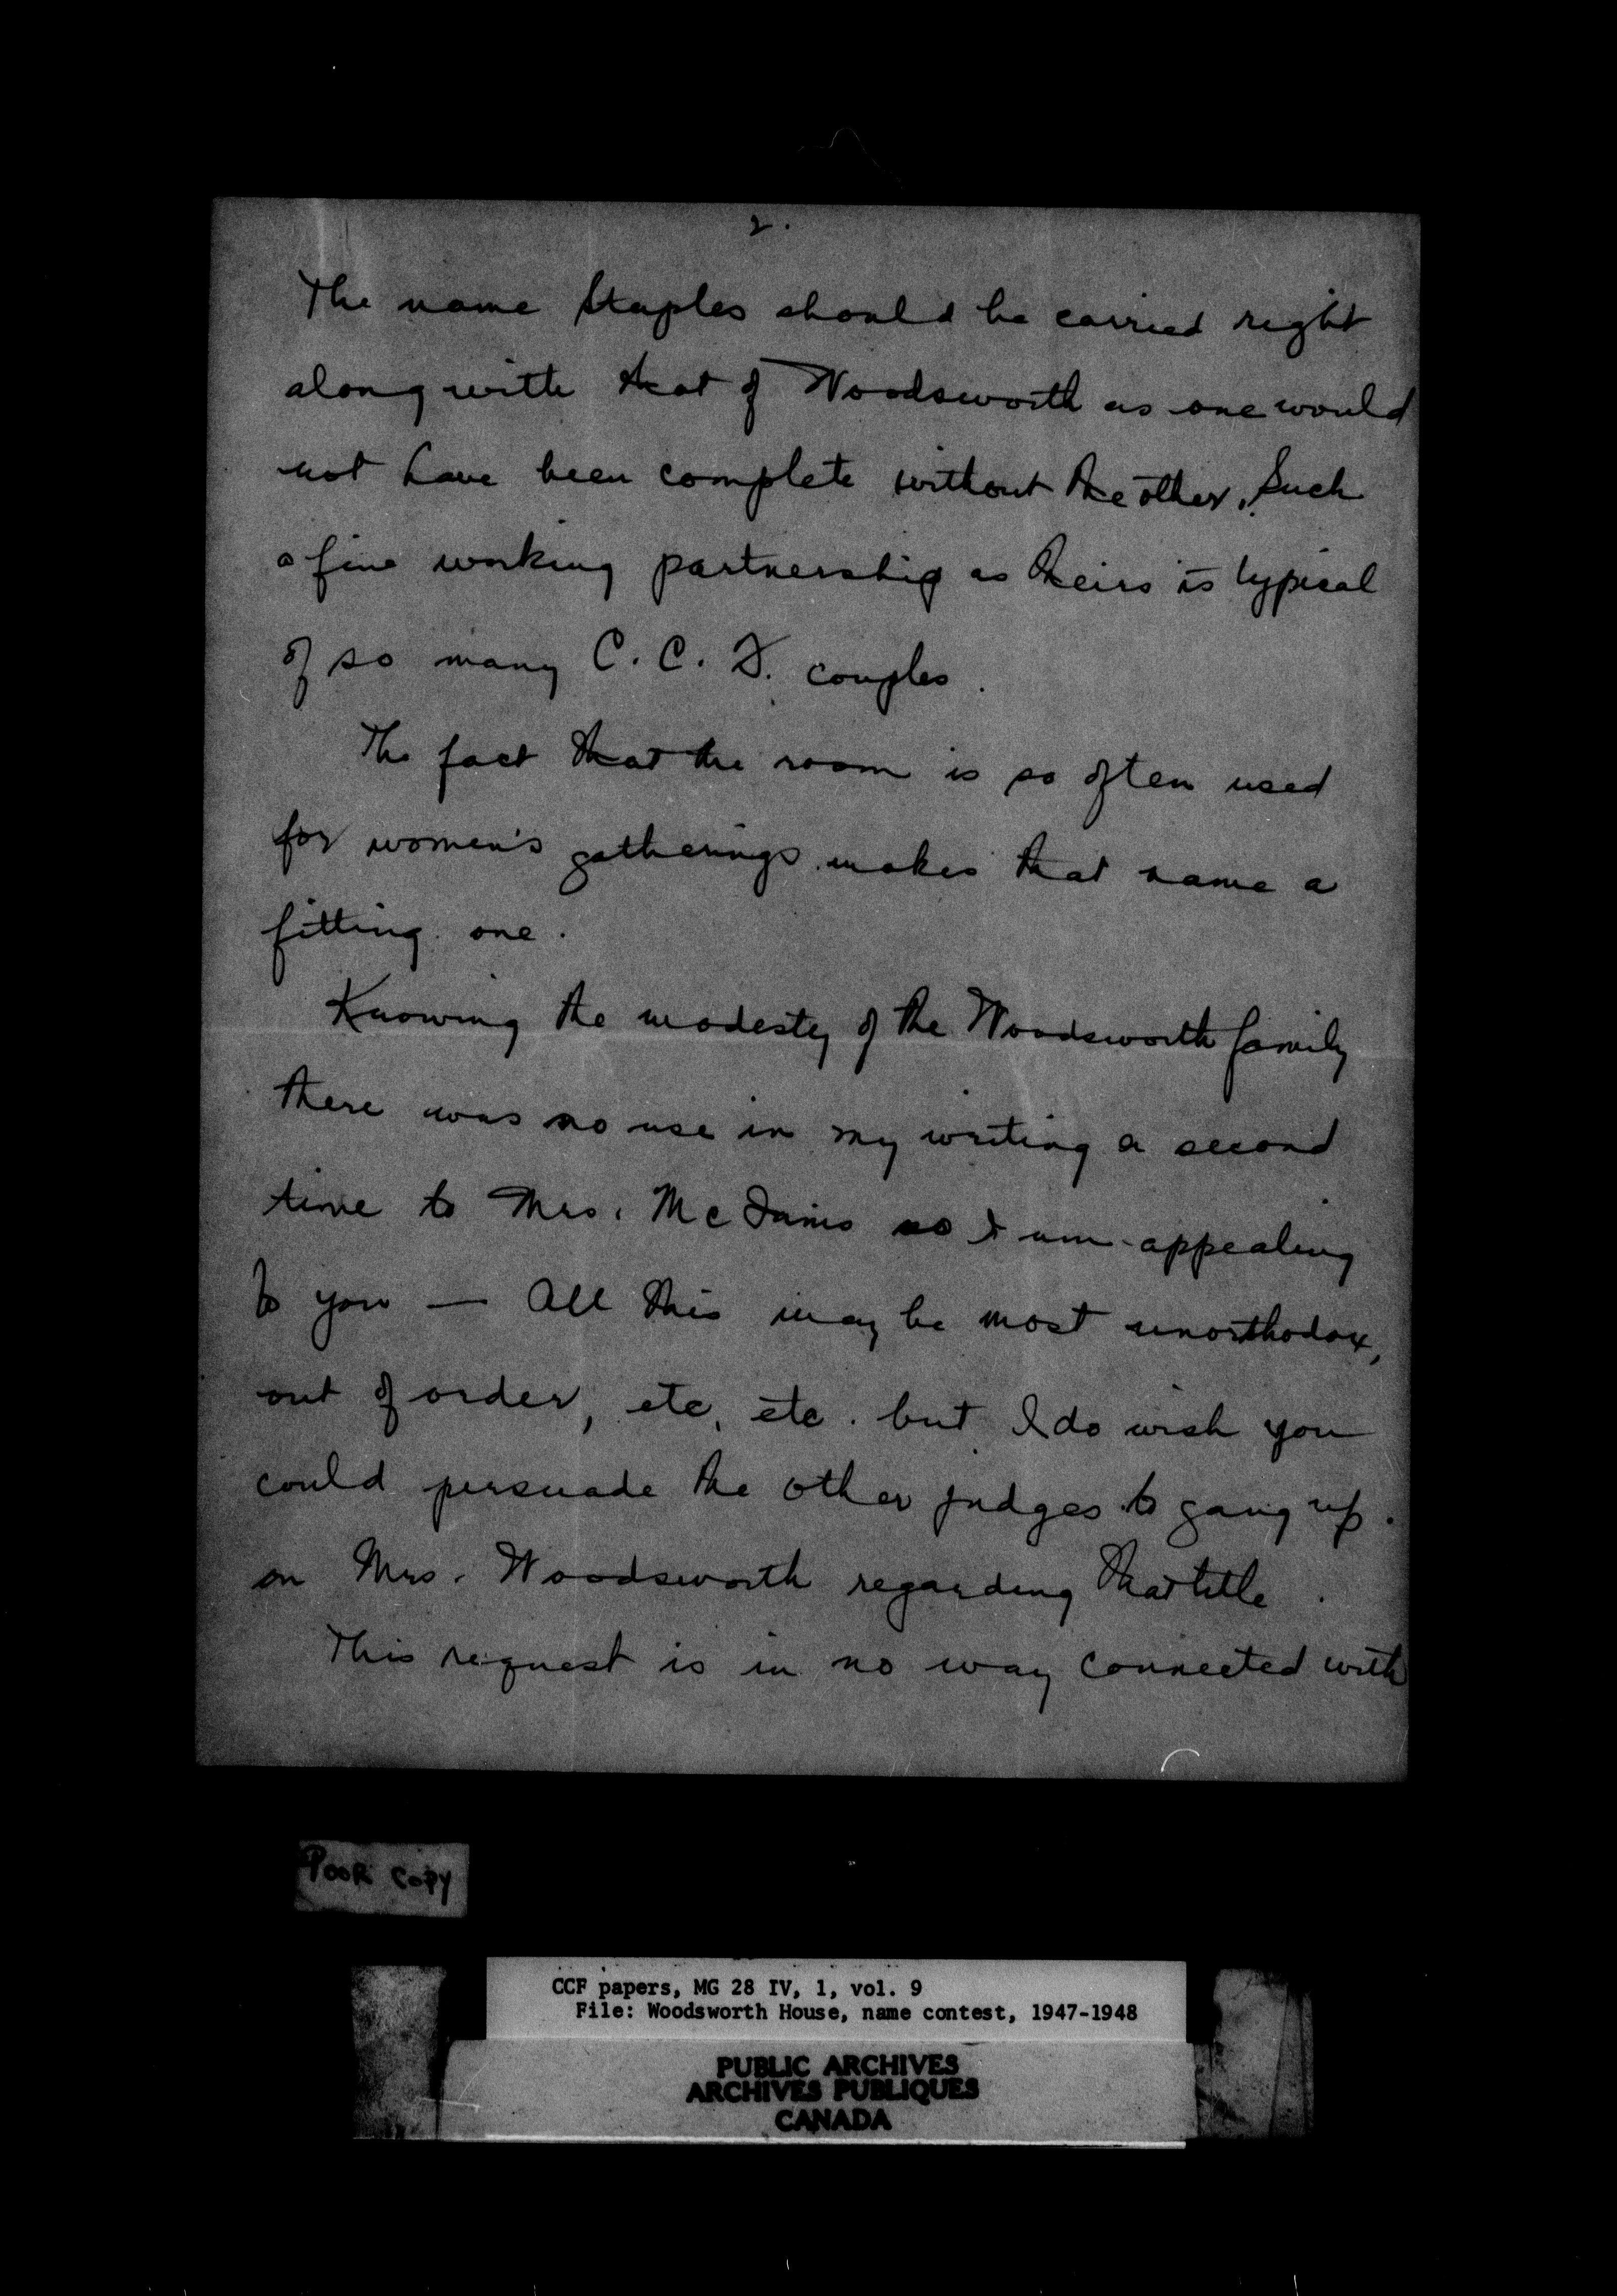 2.
The name Staples should be carried right
along with that of Woodsworth as one would
not have been complete without the other. Such
a fine working partnership as theirs is typical
of so many C. C. F. couples.
The fact that the room is so often used
for women's gatherings makes that name a
fitting one.
Knowing the modesty of the Woodsworth family
there was no use in my writing a second
time to Mrs. McInnis so I am appealing
to you — All this may be most unorthodox,
out of order, etc, etc. but I do wish you
could persuade the other judges to gang up
on Mrs. Woodsworth regarding that title.
This request is in no way connected with
POOR COPY
CCF papers, MG 28 IV, 1, vol. 9
File: Woodsworth House, name contest, 1947-1948
PUBLIC ARCHIVES
ARCHIVES PUBLIQUES
CANADA